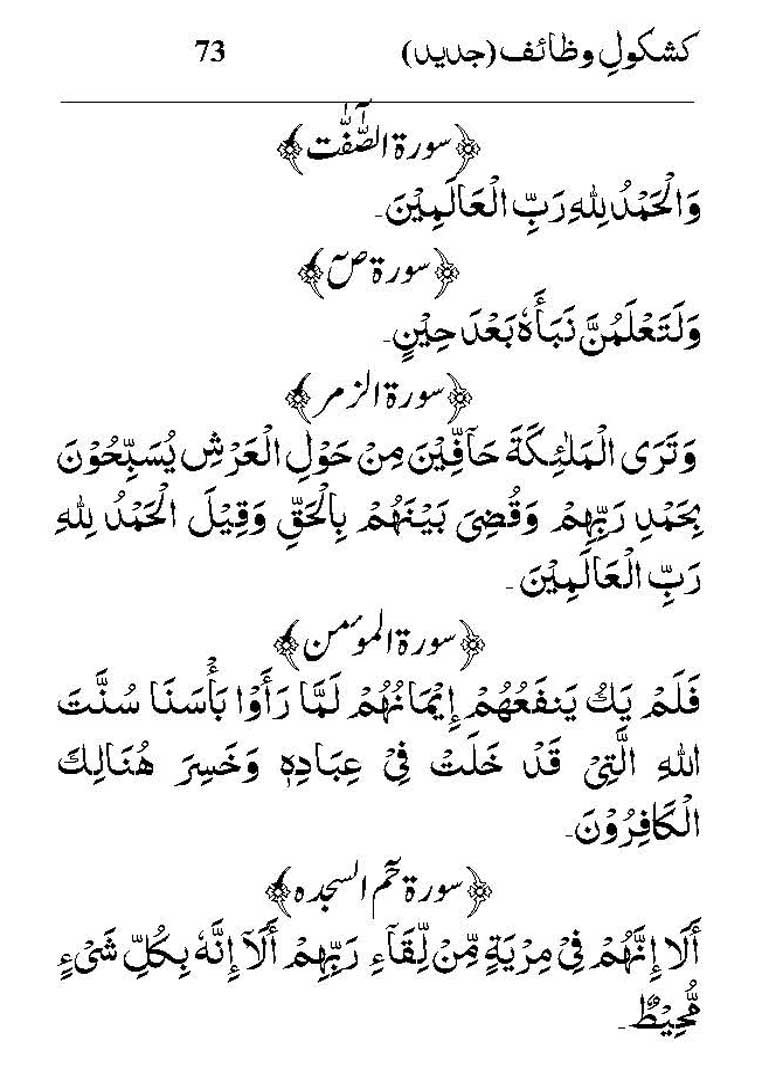 کشکولِ وظائف (جدید) 73
﴿سورۃ الصّٰٓفّٰت﴾
وَالْحَمْدُ لِلّٰهِ رَبِّ الْعَالَمِيْنَ۔
﴿سورۃ صٓ﴾
وَلَتَعْلَمُنَّ نَبَأَهٗ بَعْدَ حِيْنٍ۔
﴿سورۃ الزمر﴾
وَتَرَى الْمَلٰئِكَةَ حَآفِّيْنَ مِنْ حَوْلِ الْعَرْشِ يُسَبِّحُوْنَ
بِحَمْدِ رَبِّهِمْ وَقُضِىَ بَيْنَهُمْ بِالْحَقِّ وَقِيْلَ الْحَمْدُ لِلّٰهِ
رَبِّ الْعَالَمِيْنَ۔
﴿سورۃ المؤمن﴾
فَلَمْ يَكُ يَنفَعُهُمْ إِيْمَانُهُمْ لَمَّا رَأَوْا بَأْسَنَا سُنَّتَ
اللّٰهِ الَّتِىْ قَدْ خَلَتْ فِىْ عِبَادِهٖ وَخَسِرَ هُنَالِكَ
الْكَافِرُوْنَ۔
﴿سورۃ حٰمٓ السجدہ﴾
أَلَا إِنَّهُمْ فِىْ مِرْيَةٍ مِّنْ لِّقَآءِ رَبِّهِمْ أَلَآ إِنَّهٗ بِكُلِّ شَىْءٍ
مُّحِيْطٌ۔